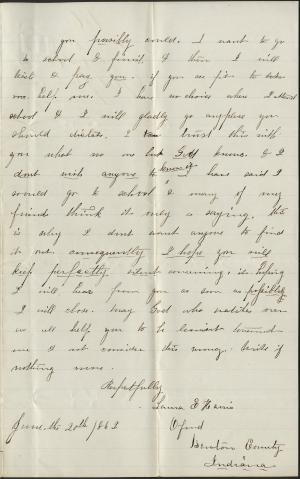 you possibly could. I want to go
to school & finish. & then I will
try & pay you. if you see fit to
me. help me. I have no choice when I attend
school & I will gladly go anyplace you
should dictate. I trust this with
you what no one but God knows. & I
dont wish anyone to know it I have said I
would go to school & many of my
friends think it only a saying, this
is why I dont want anyone to find
it out consequently I hope you will
keep perfectly silent concerning it. Hoping
I will hear from you as soon as possible
I will close. May God who watches over
us all help you to be lenient toward
me & not consider this money. Write if
nothing more.
Respectfully
Laura E Harris
June. the 20th 1882
Oxford
Benton County
Indiana